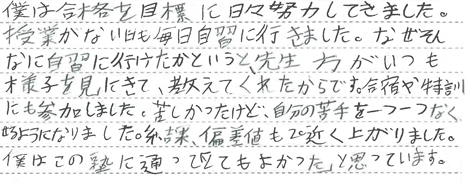 僕は合格を目標に日々努力してきました。
授業がない日も毎日自習に行きました。なぜそん
なに自習に行けたかというと先生方がいつも
様子を見にきて、教えてくれたからです。合宿や特訓
にも参加しました。苦しかったけど、自分の苦手を一つ一つなく
せるようになりました。結果、偏差値も20近く上がりました。
僕はこの塾に通ってとてもよかったと思っています。